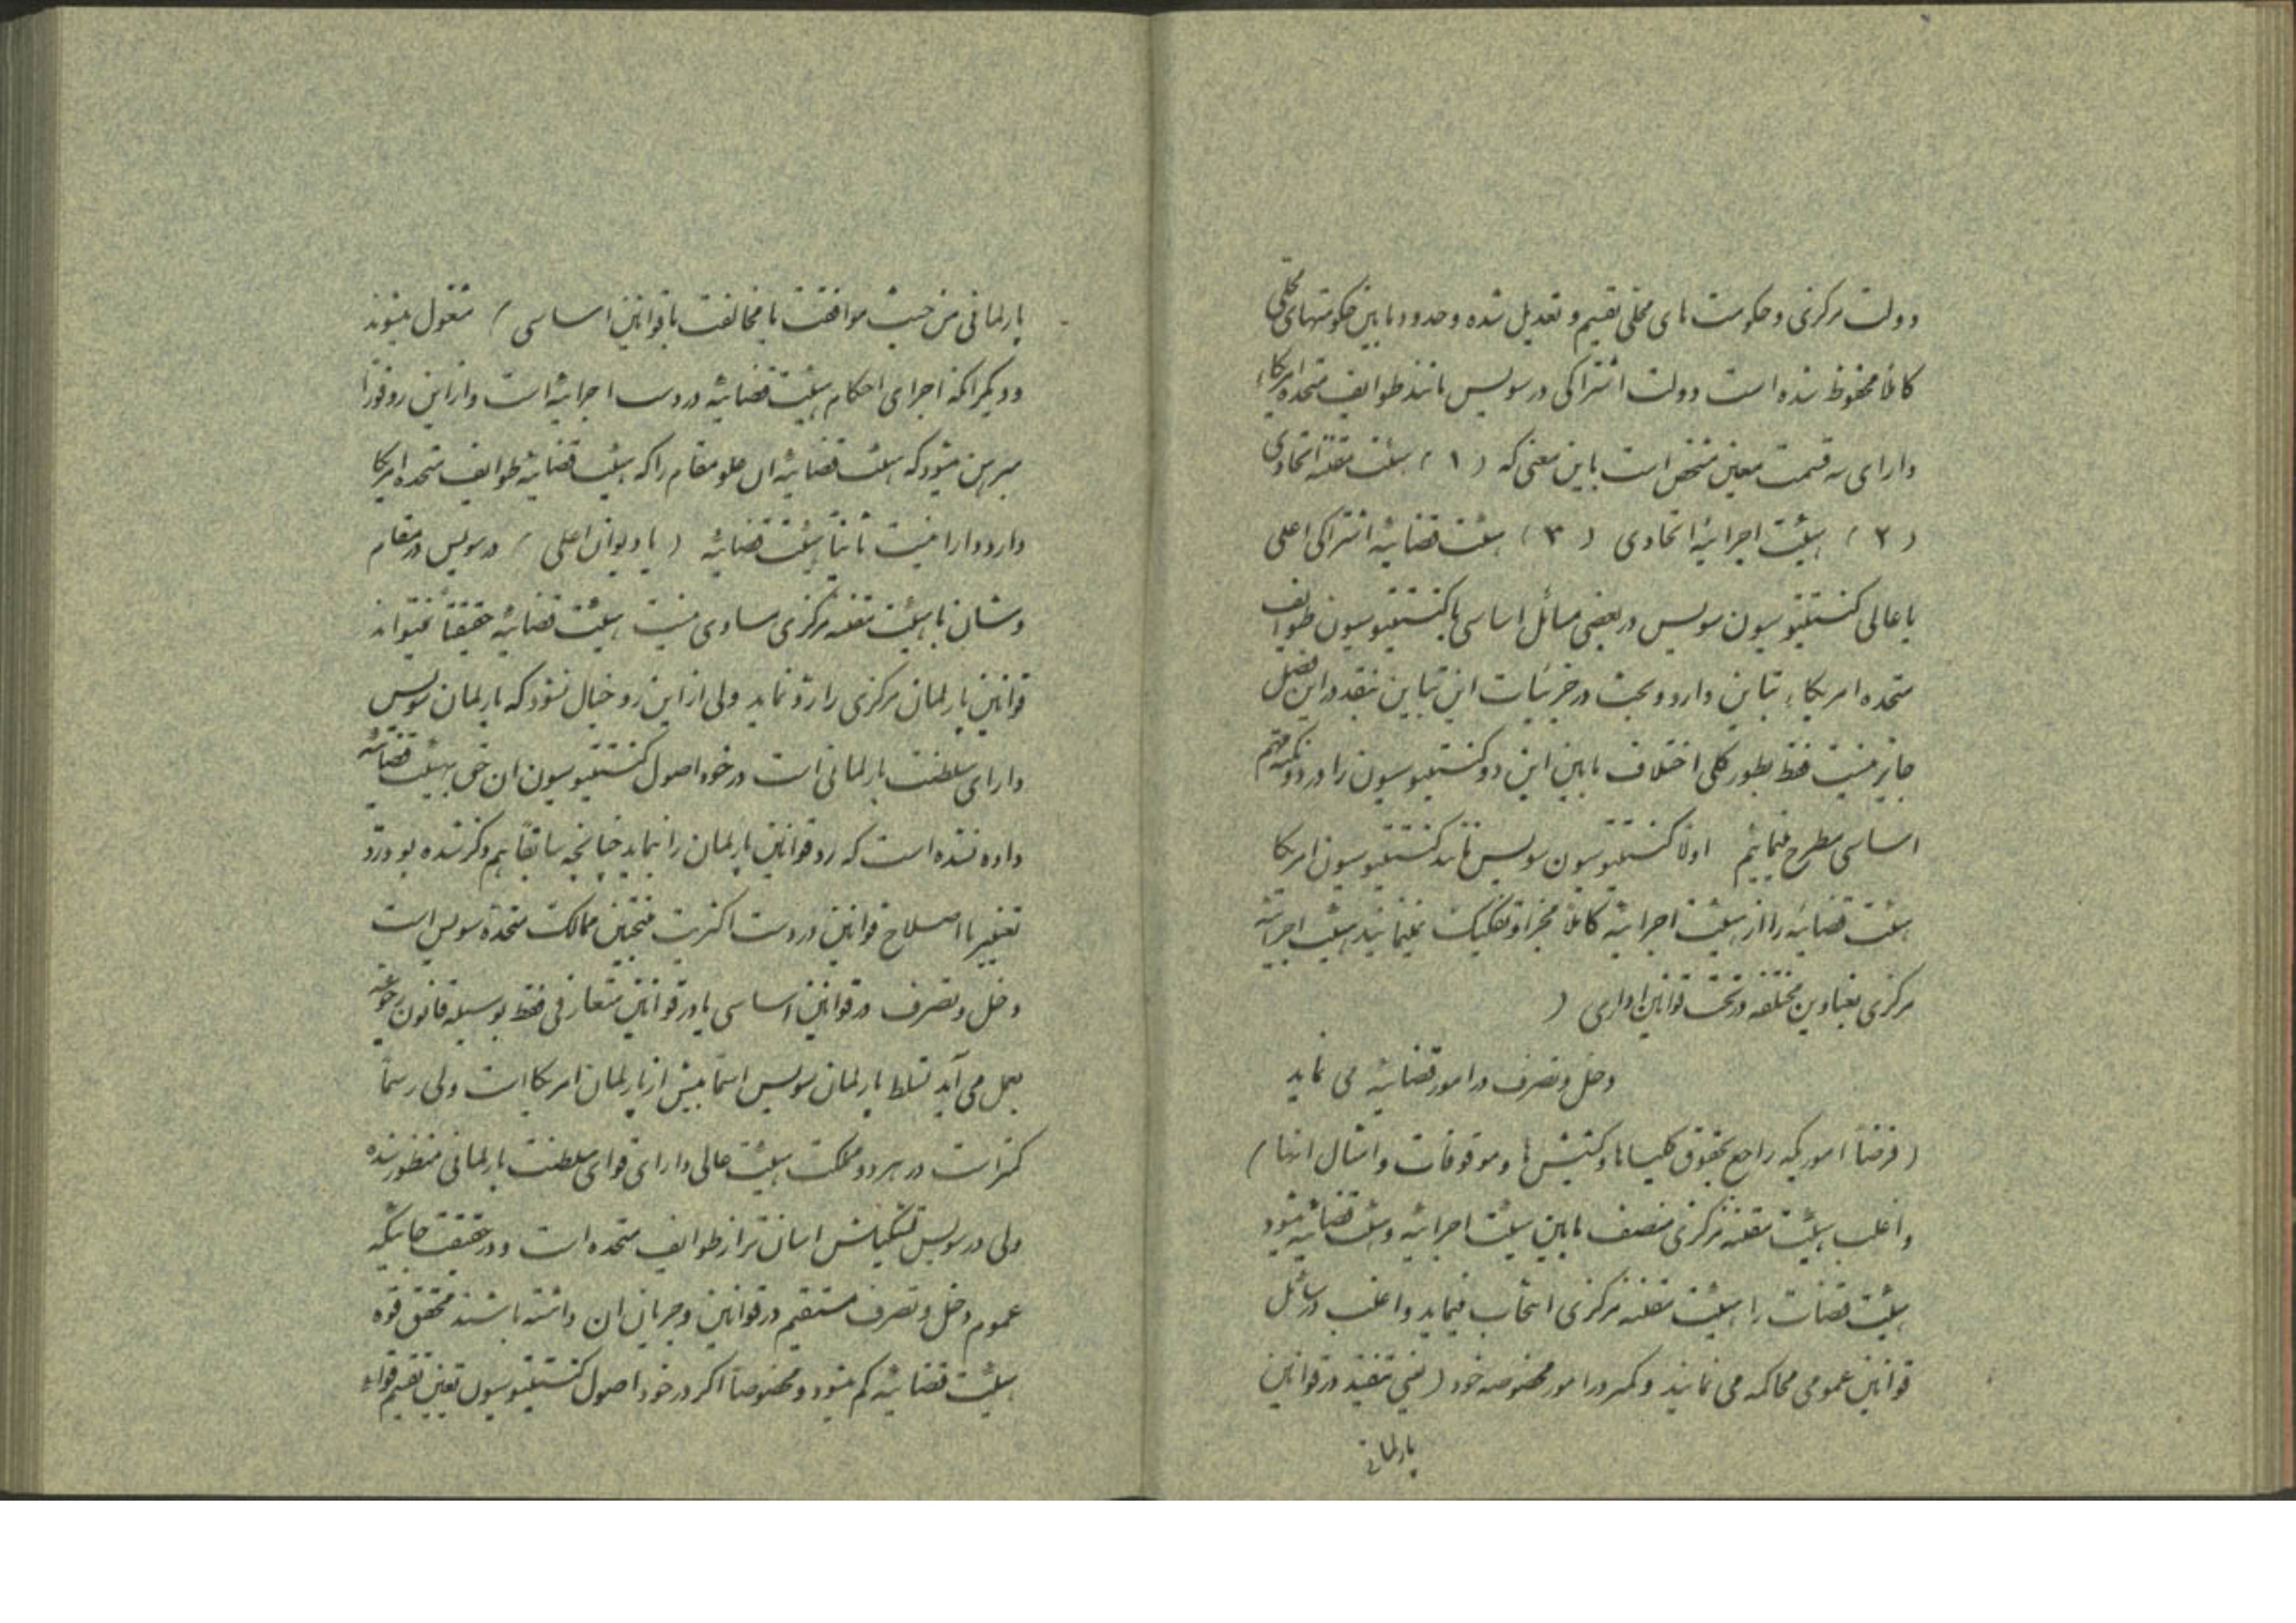 دولت مرکزی و حکومت های محلی تقسیم و تعدیل شده و حدود مابین حکومتهای محلی
کاملا محفوظ شده است دولت اشتراکی در سویس مانند طوایف متحده امریکاء
دارای سه قسمت معین مشخص است باین معنی که (۱) هیئت مقننه اتحادی
(۲) هیئت اجرائیه اتحادی (۳) هیئت قضائیه اشتراکی اعلی
یا عالی کنستیتیوسیون سویس در بعضی مسائل اساسی با کنستیتیوسیون طوایف
متحده امریکاء تباین دارد و بحث در جزئیات این تباین بنقد در این فصل
جایز نیست فقط بطور کلی اختلاف مابین این دو کنستیتیوسیون را در دو نکته مهم
اساسی مطرح مینمائیم اولاً کنستیتیوسیون سویس مانند کنستیتیوسیون امریکا
هیئت قضائیه را از هیئت اجرائیه کاملاً مجزا و تفکیک نمینمایند هیئت اجرائیه
مرکزی بعناوین مختلفه در تحت قوانین اداری (
دخل و تصرف در امور قضائیه می نماید
(فرضاً اموریکه راجع بحقوق کلیساها و کشیش ها و موقوفات و امثال انها)
و اغلب هیئت مقننه مرکزی منصف مابین هیئت اجرائیه و هیئت قضائیه میشود
هیئت قضات را هیئت مقننه مرکزی انتخاب مینماید و اغلب در مسائل
قوانین عمومی محاکمه می نمایند و کمتر در امور مخصوصه خود (یعنی تنقید در قوانین
پارلمانی
پارلمانی من حیث موافقت یا مخالفت با قوانین اساسی) مشغول میشوند
و دیگر آنکه اجرای احکام هیئت قضائیه در دست اجرائیه است و از این رو فوراً
مبرهن میشود که هیئت قضائیه ان علو مقام را که هیئت قضائیه طوایف متحده امریکا
دارد دارا نیست ثانیاً هیئت قضائیه (یا دیوان اعلی) در سویس در مقام
و شان با هیئت مقننه مرکزی مساوی نیست هیئت قضائیه حقیقتاً نمیتواند
قوانین پارلمان مرکزی را رد نماید ولی از این رو خیال نشود که پارلمان سویس
دارای سلطنت پارلمانی است در خود اصول کنستیتیوسیون ان حق بهیئت قضائیه
داده نشده است که رد قوانین پارلمان را نماید چنانچه سابقاً هم ذکر شده بود رد و
تغییر یا اصلاح قوانین در دست اکثریت منتخبین ممالک متحده سویس است
دخل و تصرف در قوانین اساسی یا در قوانین متعارفی فقط بوسیله قانون رجوعیه
بعمل می آید تسلط پارلمان سویس اسماً بیش از پارلمان امریکا است ولی رسماً
کمتر است در هر دو مملکت هیئت عالی دارای قوای سلطنت پارلمانی منظور نشده
ولی در سویس تشکیلش اسان تر از طوایف متحده است و در حقیقت جائیکه
عموم دخل و تصرف مستقیم در قوانین و جریان ان داشته باشند محقق قوه
هیئت قضائیه کم میشود و مخصوصاً اگر در خود اصول کنستیتیوسیون تعیین تقسیم قواء